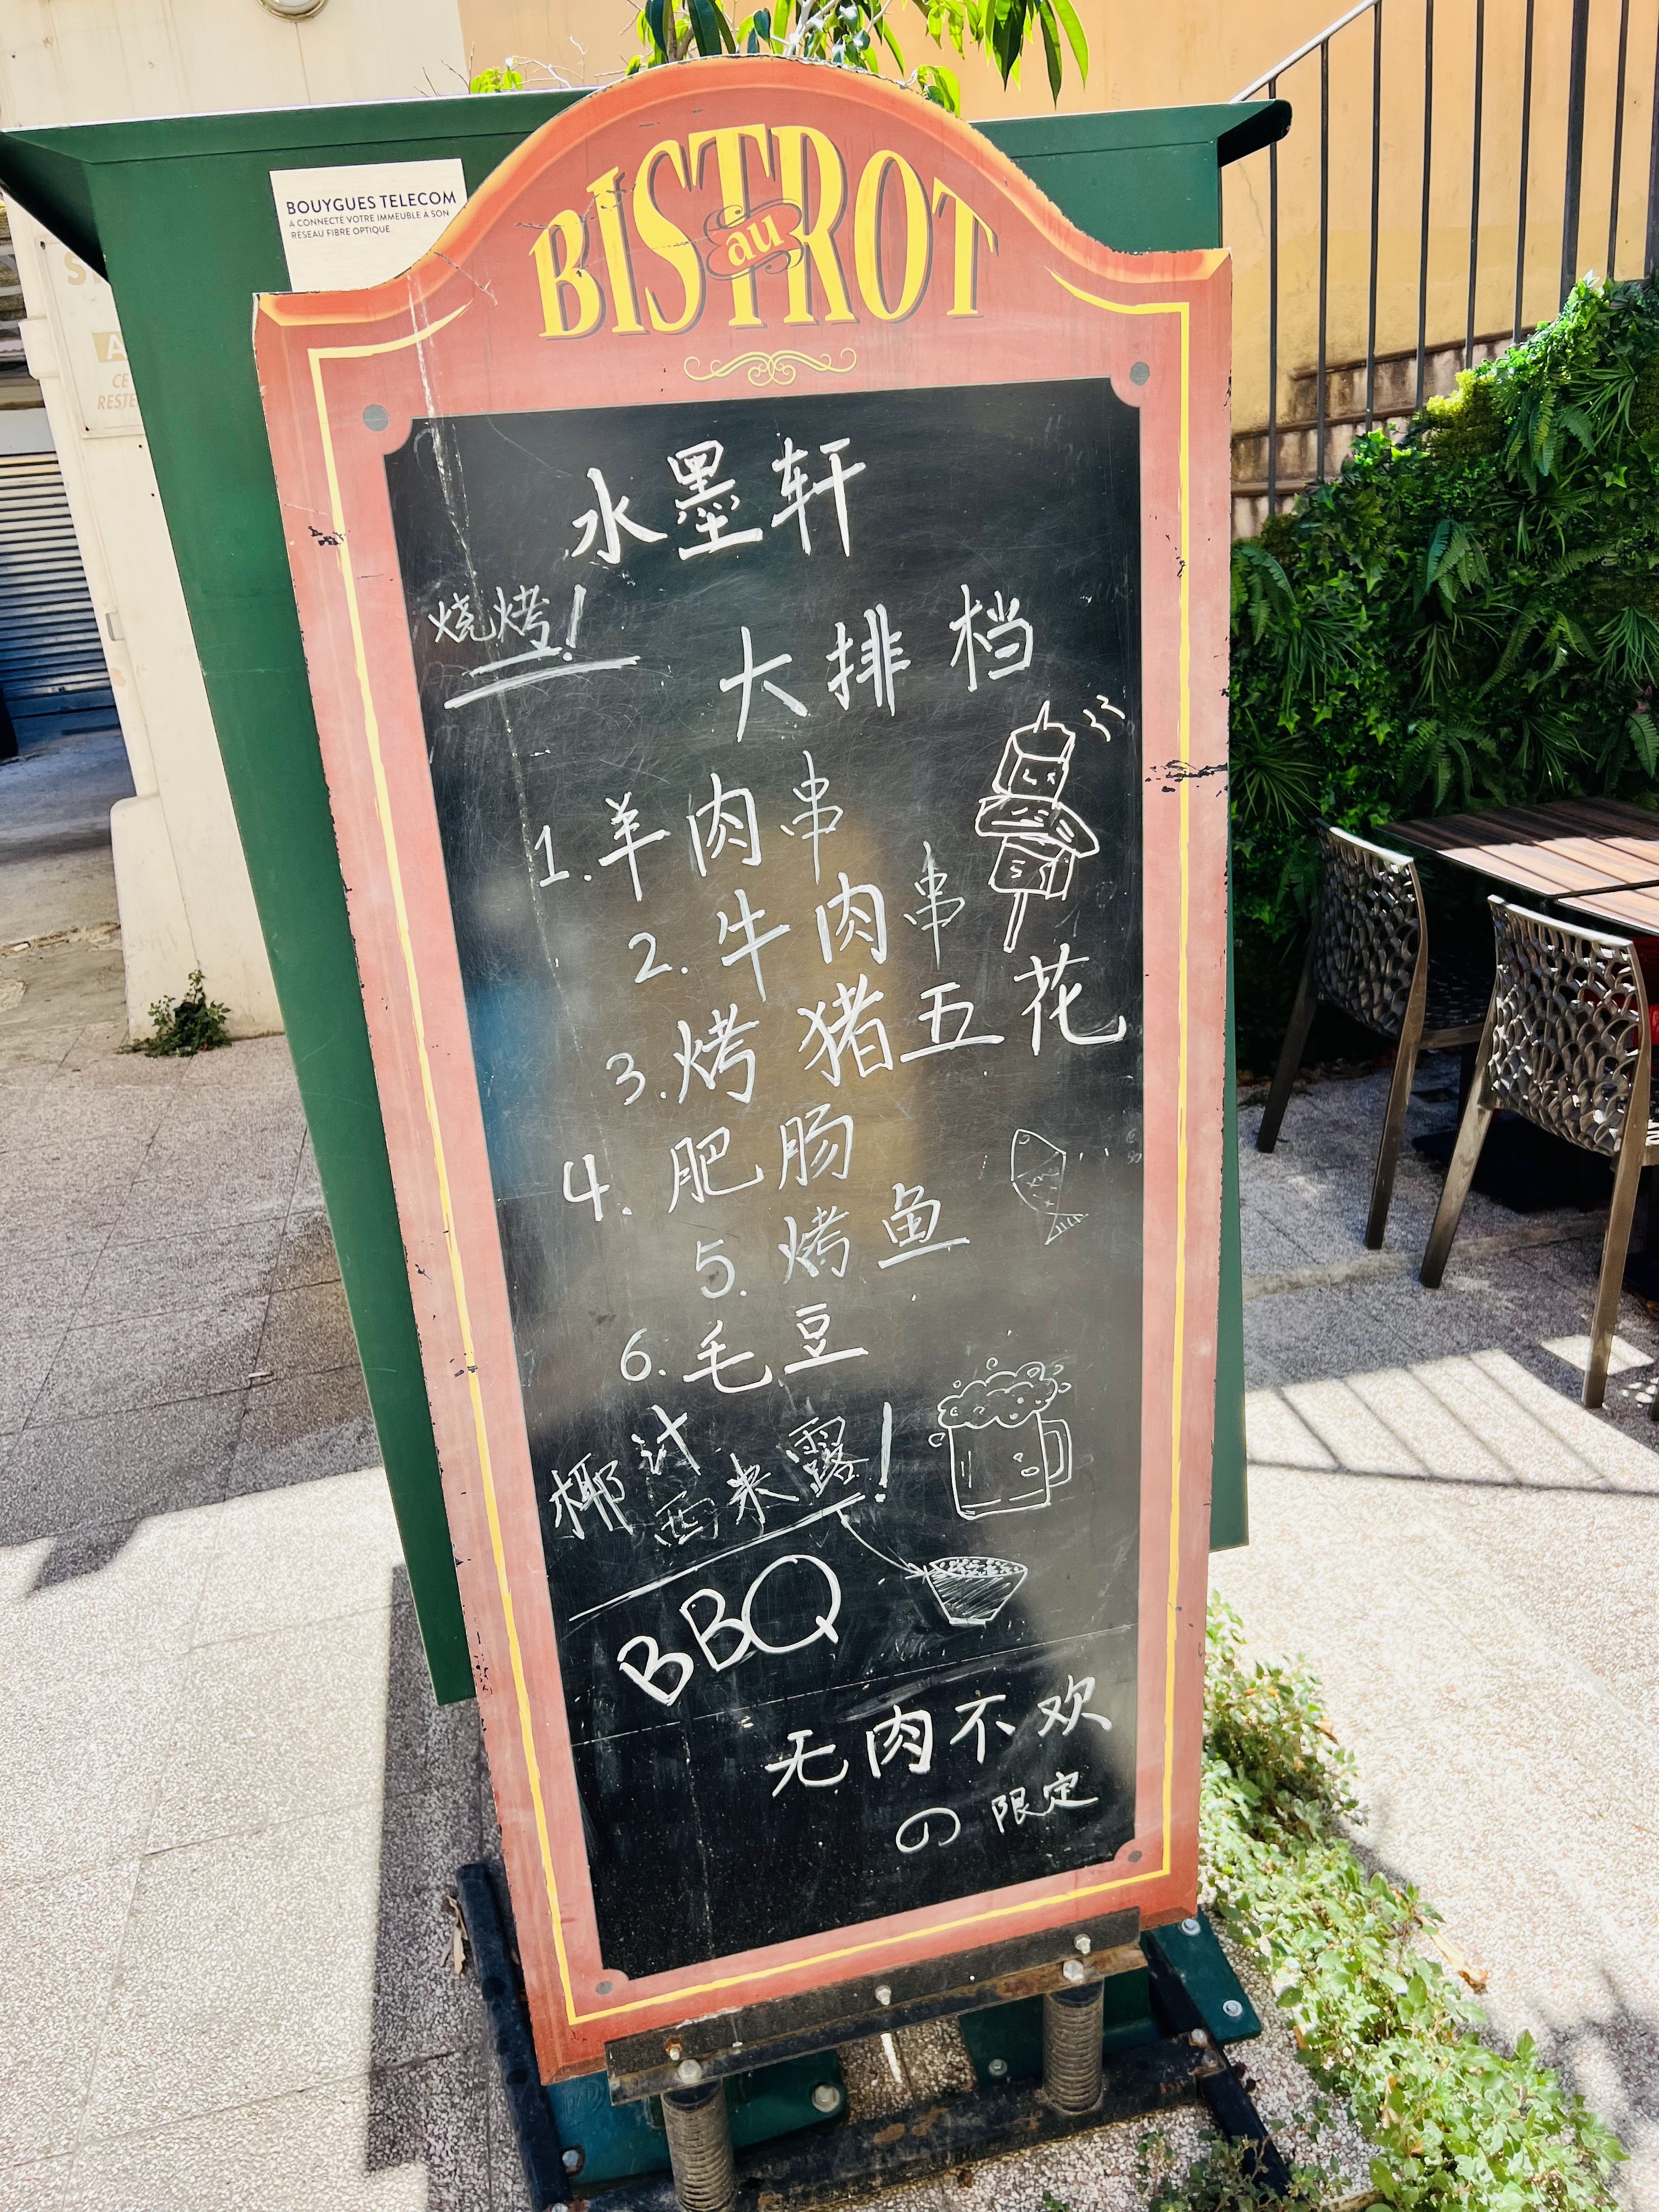 BOUYGUES TELECOM
A CONNECTÉ VOTRE IMMEUBLE À SON
RÉSEAU FIBRE OPTIQUE
BISTROT
au
水墨轩
烧烤!
大排档
1.羊肉串
2.牛肉串
3.烤猪五花
4.肥肠
5.烤鱼
6.毛豆
椰汁
西米露!
BBQ
无肉不欢
の限定
CE
RESTE